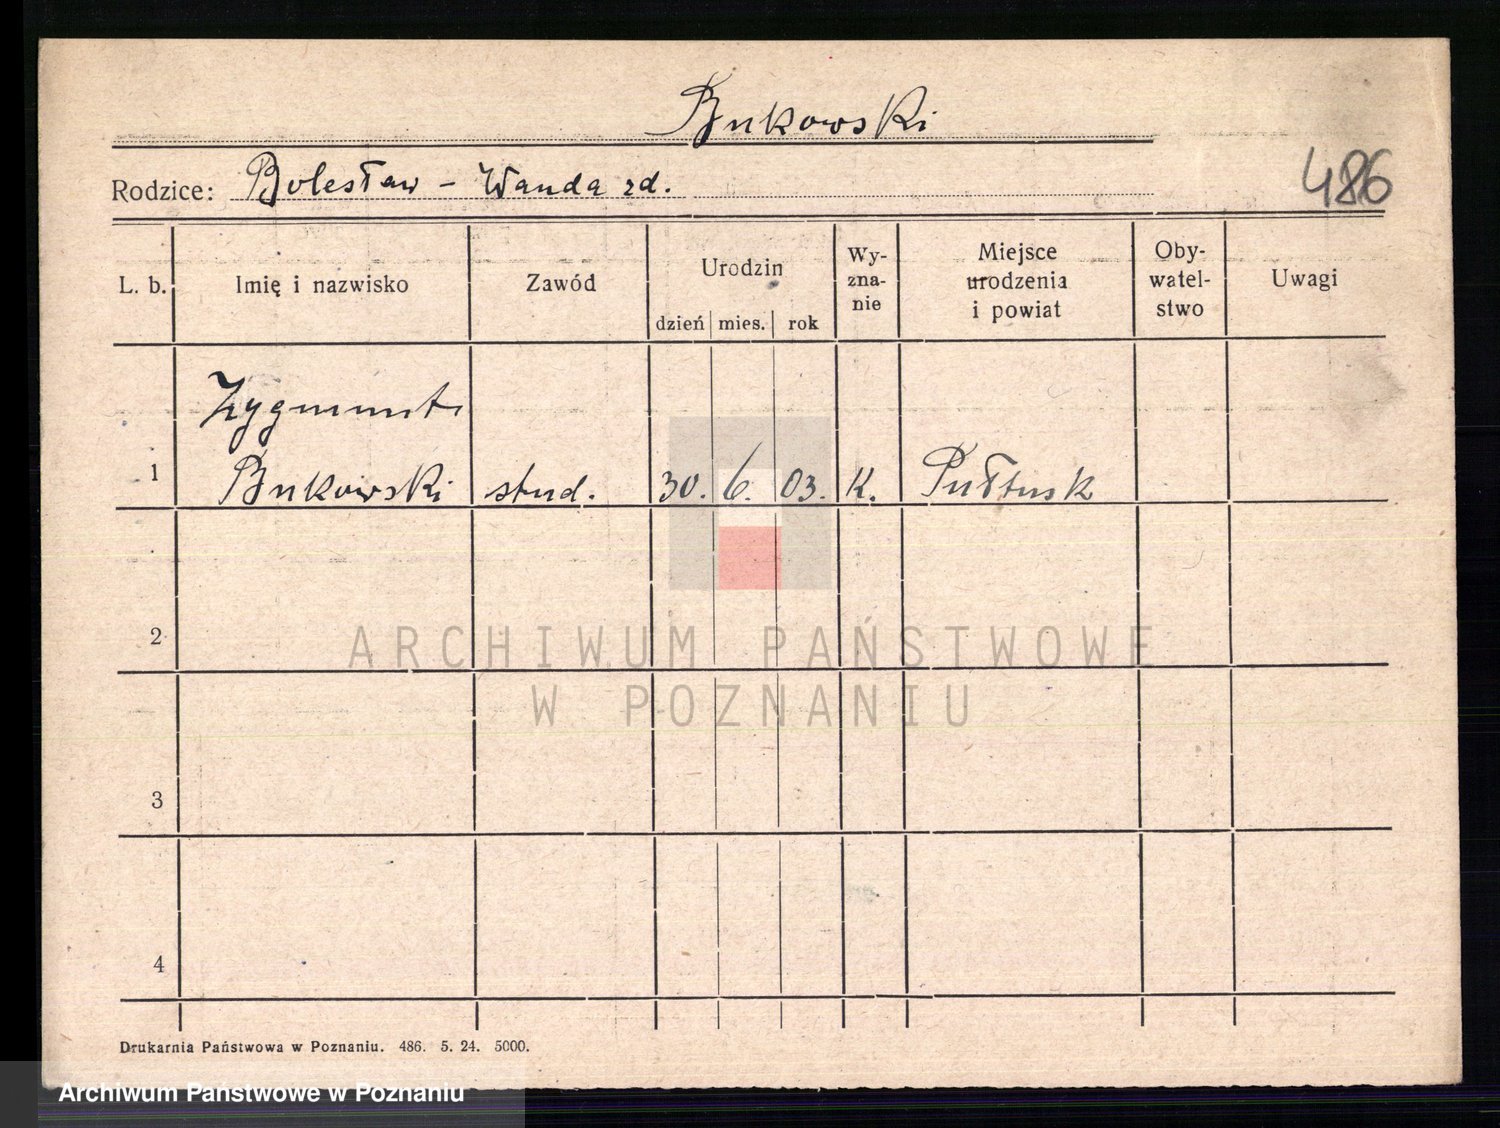 Bukowski
Rodzice: Bolesław - Wanda zd.
486
L. b.
Imię i nazwisko
Zawód
Urodzin
dzień mies. rok
Wy-
zna-
nie
Miejsce
urodzenia
i powiat
Oby-
watel-
stwo
Uwagi
Zygmunt
1 Bukowski stud. 30. 6. 03. K. Pułtusk
2
ARCHIWUM PAŃSTWOWE
W POZNANIU
3
4
Drukarnia Państwowa w Poznaniu. 486. 5. 24. 5000.
Archiwum Państwowe w Poznaniu